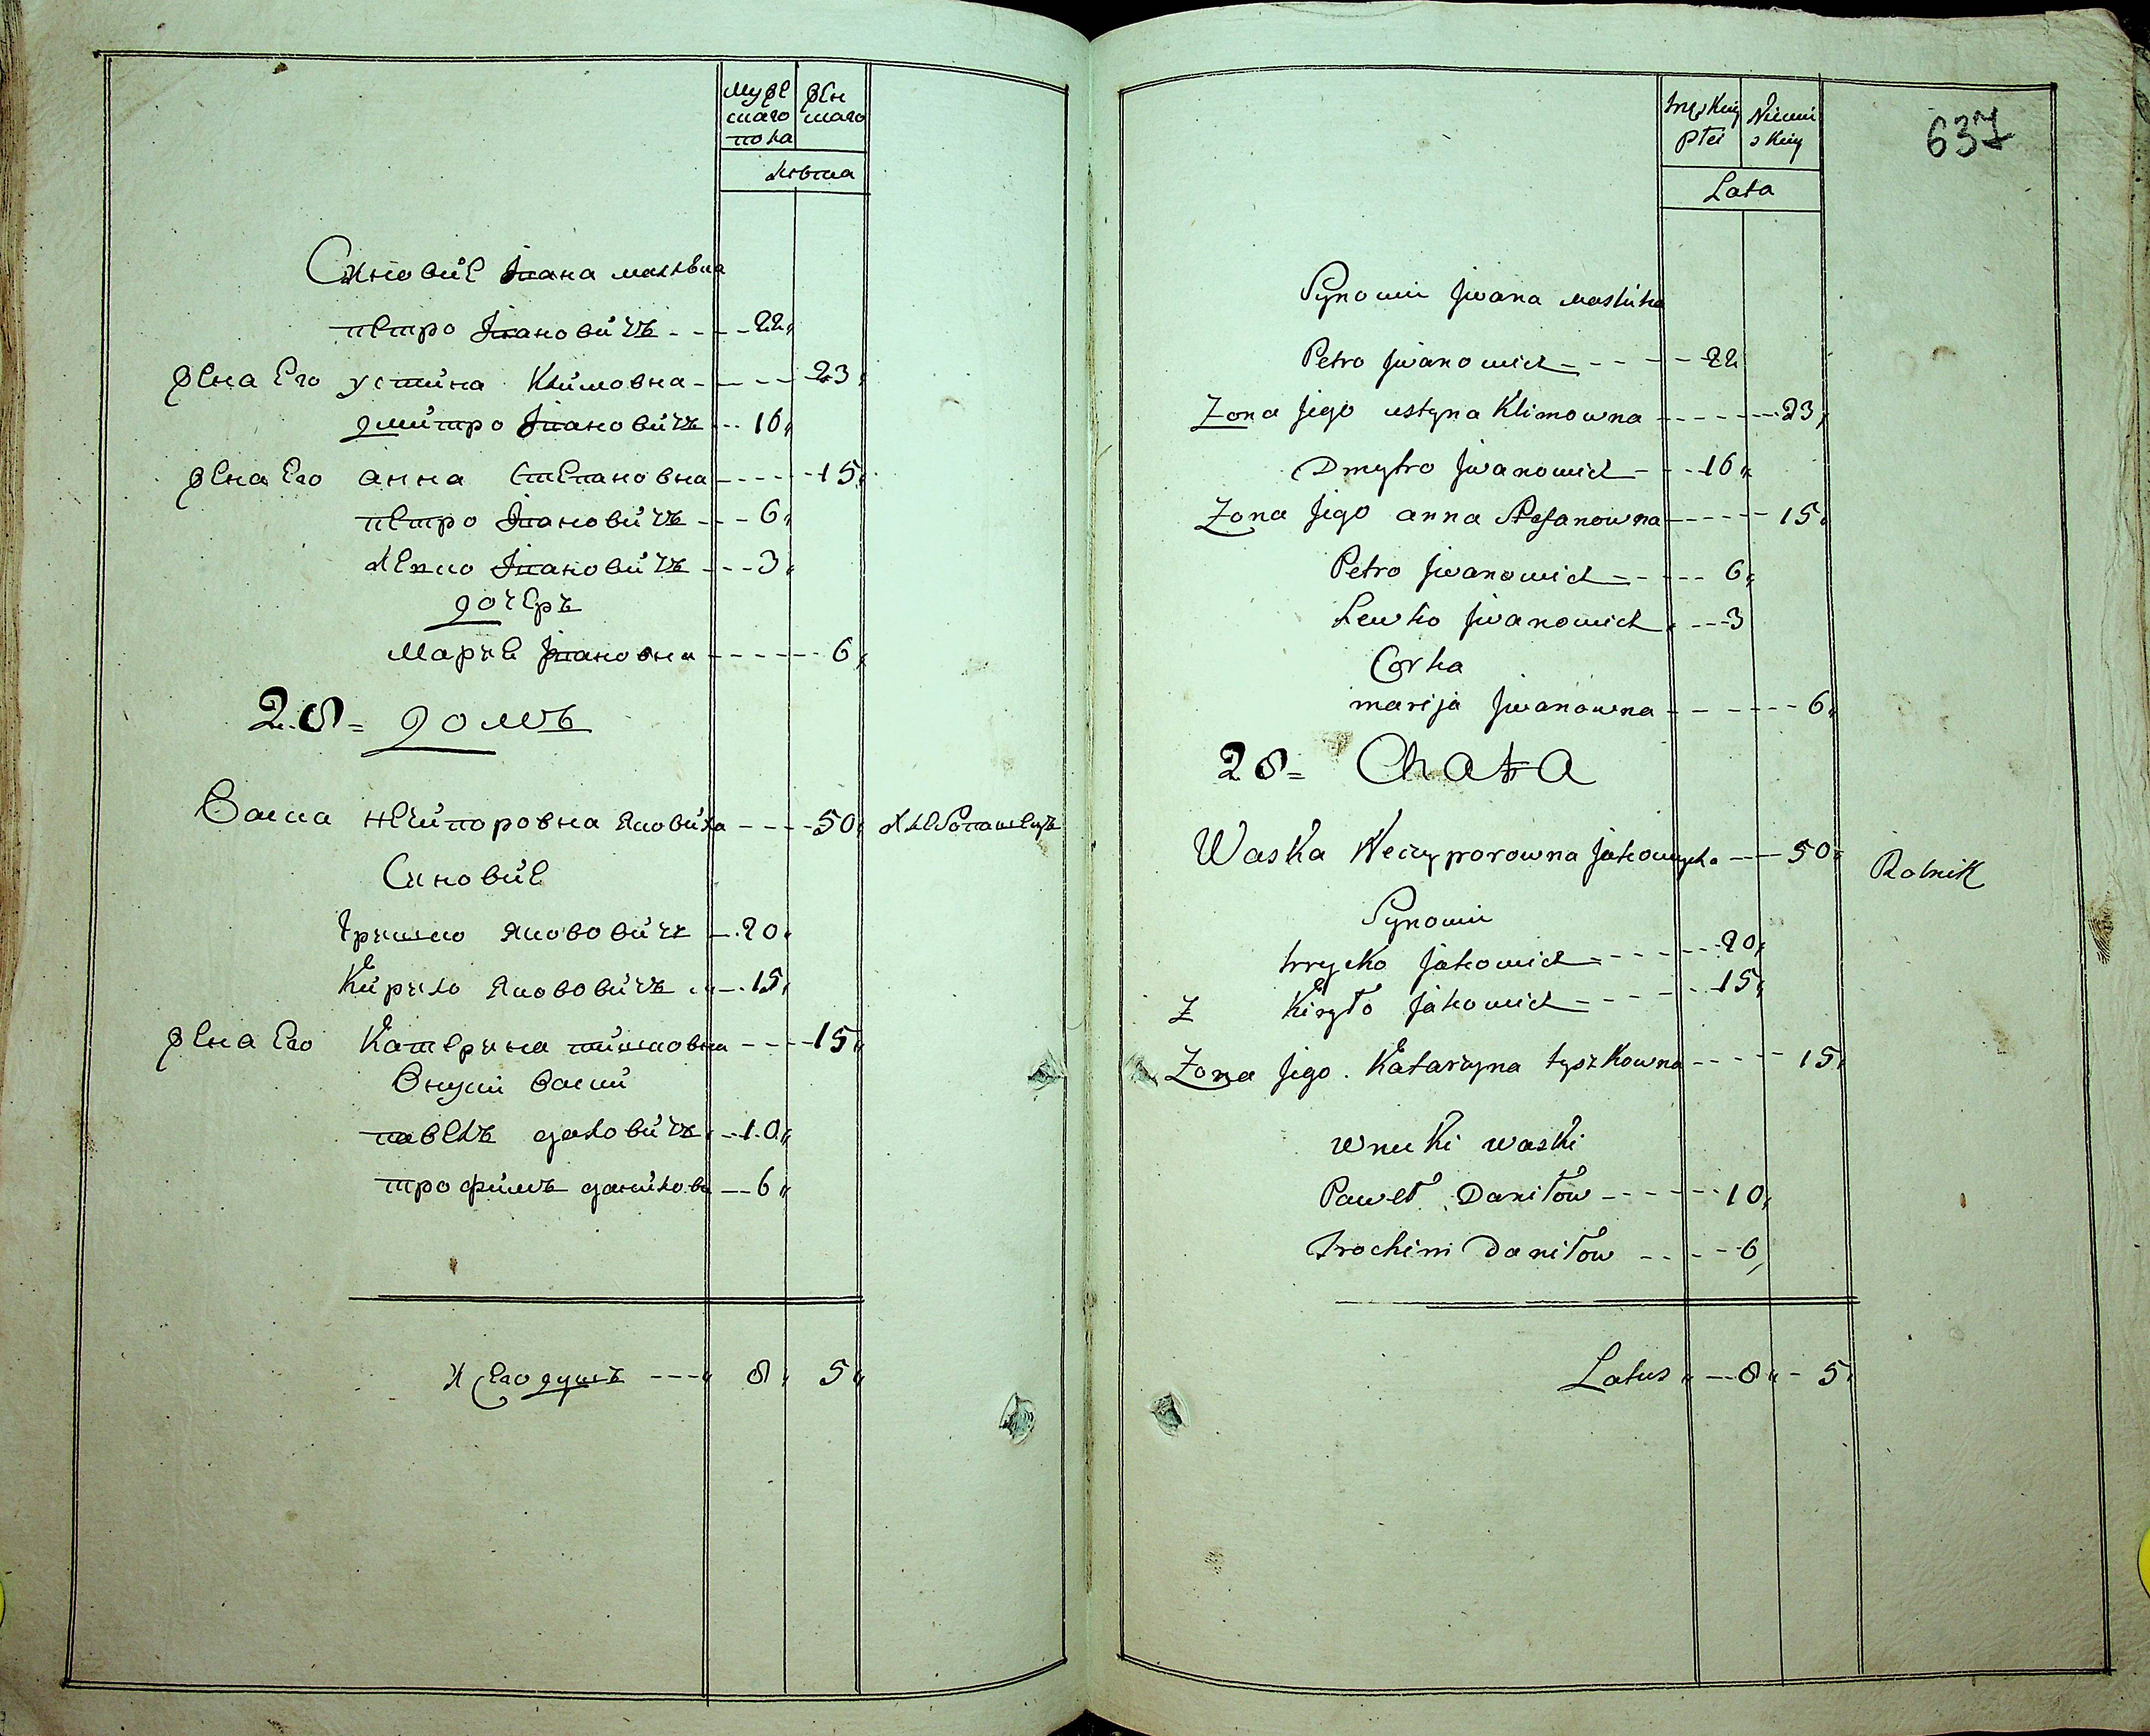 Муже
скаго
пола
Жен
скаго
Лѣта
Синовіе Івана
петро Івановичъ 22
жена Его устина Климовна 23
дмитро Івановичъ 16
жена Его анна Степановна 15
петро Івановичъ 6
Левко Івановичъ 3
дочеръ
Марія Івановна 6
28 = домъ
Васка Нечипоровна Яковиха 50 Хлебопашецъ
Синовіе
Гришко Яковович 20
Кирило Якововичъ 15
жена Его Катерина тишковна 15
Внуки Васки
павелъ 10
трофимъ данилови 6
Всего душъ 8 5
637
Męzkiy
Płci
Niewi
skiey
Lata
Synowie Jwana
Petro Jwanowich 22
Zona Jego ustyna Klimowna 23
Dmytro Jwanowich 16
Zona Jego anna Stefanowna 15
Petro Jwanowich 6
Lewko Jwanowich 3
Corka
marija Jwanowna 6
28 = Chata
Waska Neczyporowna Jakowycha 50 Rolnik
Synowie
hrycko Jakowich 20
Z Kiryło Jakowich 15
Zona Jego Katarzyna tyszkowna 15
wnuki waski
Paweł Daniłow 10
trochim Daniłow 6
Latus 8 5